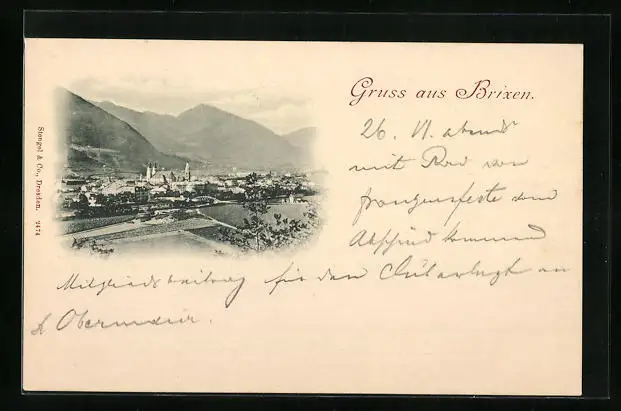 Gruss aus Brixen.
26. VI. abends
mit Rad von
Franzensfeste dann
Abschied kommend
Mitgliedsbeitrag für den an
Obermair.
Stengel & Co., Dresden. 2474